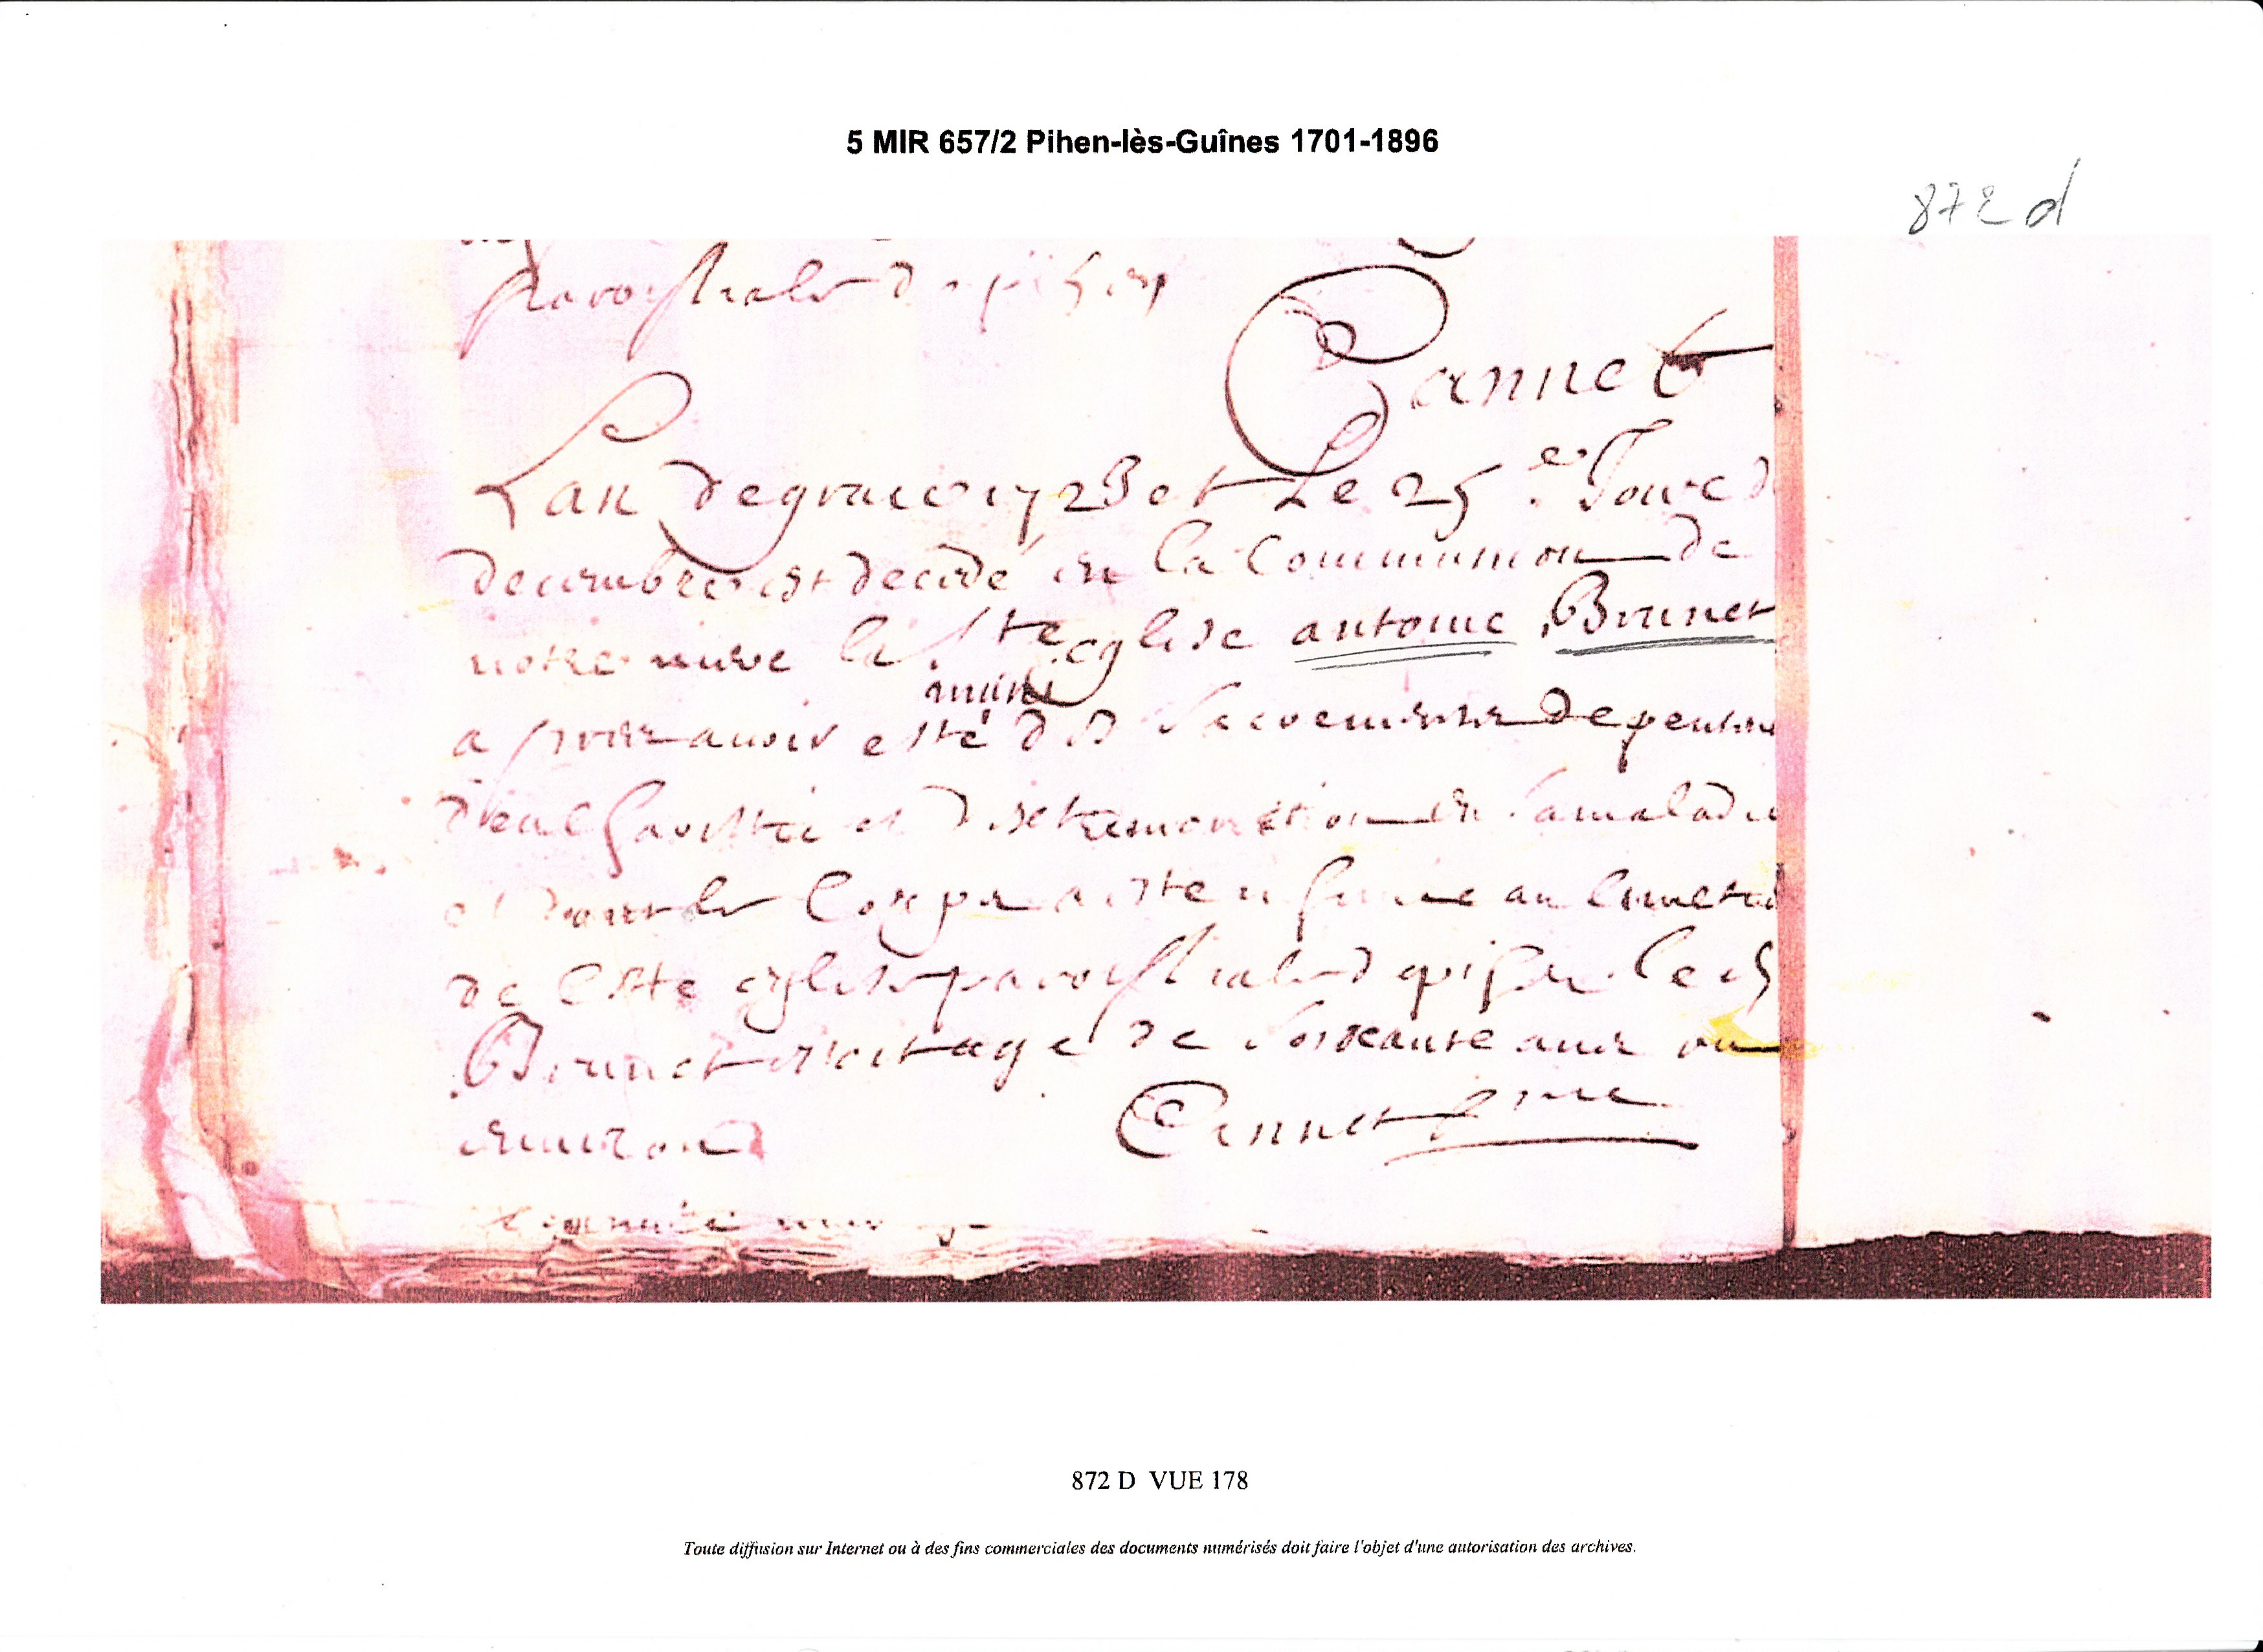 5 MIR 657/2 Pihen-lès-Guînes 1701-1896
872 d
paroissiale de pihen
Cannet
Lan de grace 1723 et Le 25.e Jour d
decembre est decedé en la Communion de
notre mere la Ste eglise antoine Brunet
muni
apres avoir esté des Sacremens de peniten
d'eucharistie et d'extremonction en sa maladie
et dont le Corps a esté inhumé au Cimetie
de Cette eglise paroissiale de pihen le d
Brunet estoit agé de soixante ans ou
environ
Cannet
872 D VUE 178
Toute diffusion sur Internet ou à des fins commerciales des documents numérisés doit faire l'objet d'une autorisation des archives.